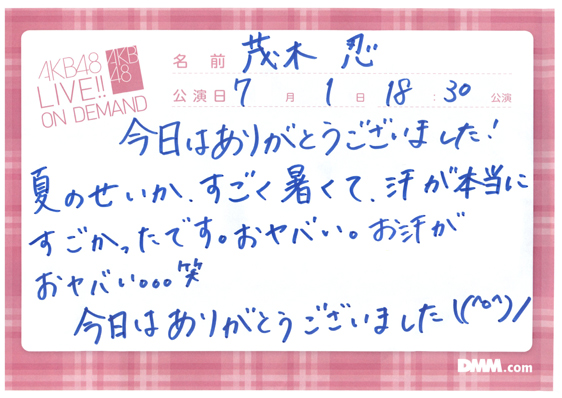 AKB48
LIVE!!
ON DEMAND
AKB
48
名前 茂木 忍
公演日 7月 1日 18:30 公演
今日はありがとうございました!
夏のせいか、すごく暑くて、汗が本当に
すごかったです。おヤバい。お汗が
おヤバい。。。笑
今日はありがとうございました\(^o^)/
DMM.com